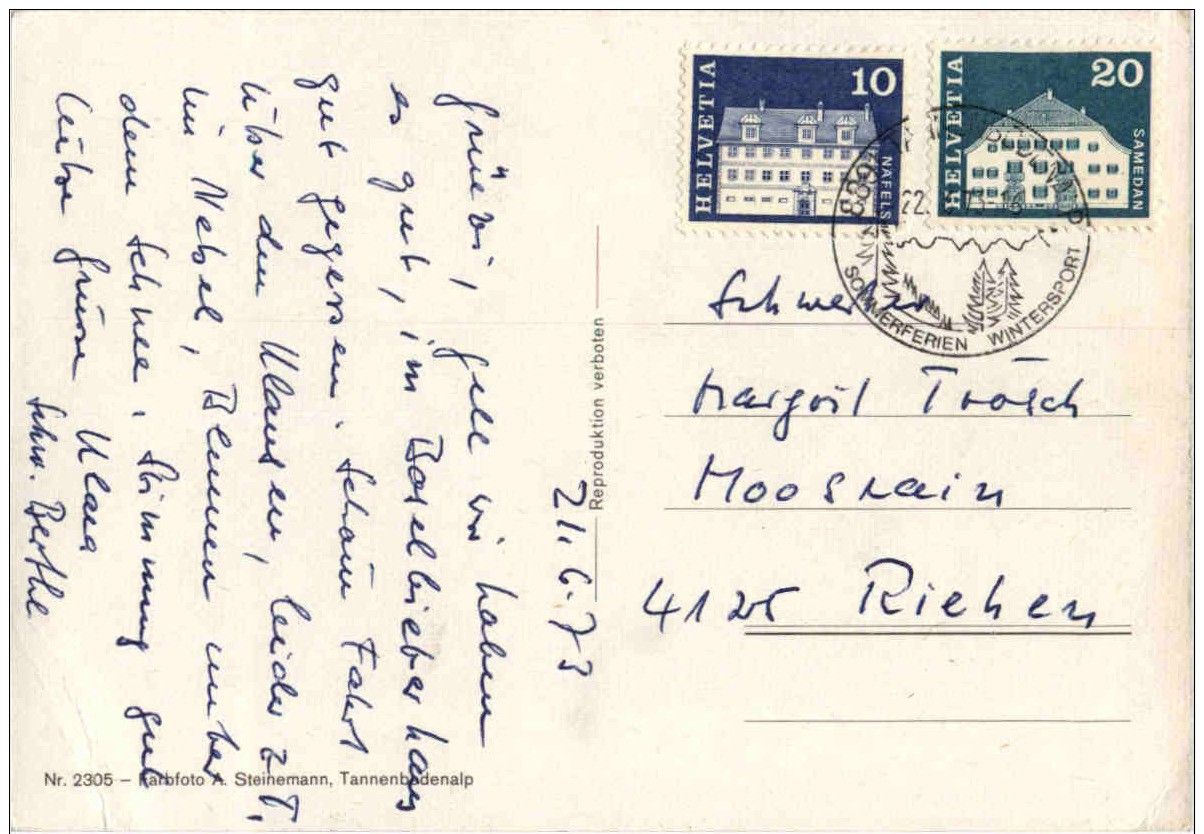 21.6.73
Grüezi, gell wir haben
es gut, im Baselbieterhaus
gut gegessen. Schöne Fahrt
über den Klausen, leider z. T.
im Nebel, Blumen unter
dem Schnee. Stimmung gut
Liebe Grüsse Klara
Schw. Berthe
Nr. 2305 – Farbfoto A. Steinemann, Tannenbodenalp
Reproduktion verboten
HELVETIA 10 NÄFELS
HELVETIA 20 SAMEDAN
SOMMERFERIEN WINTERSPORT
Schwester
Margrit Trösch
Moosrain
4125 Riehen